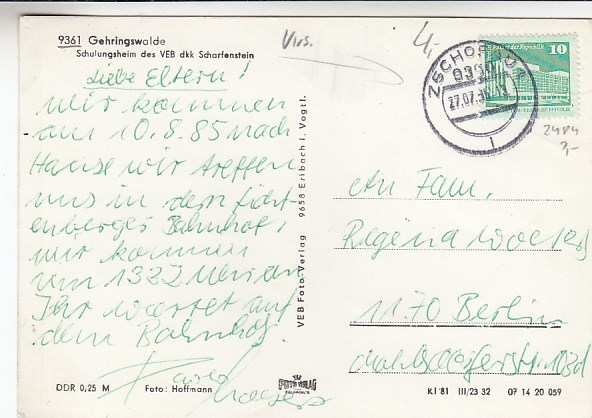 9361 Gehringswalde
Schulungsheim des VEB dkk Scharfenstein
Liebe Eltern!
Wir kommen
am 10.8.85 nach
Hause wir treffen
uns in dem Licht-
enberger Bahnhof,
wir kommen
um 1322 Uhr an
Ihr wartet auf
dem Bahnhof.
VEB Foto-Verlag 9658 Erlbach i. Vogtl.
DDR 0,25 M
Foto: Hoffmann
FOTO VERLAG
ZSCHOPAU
27.07.
1
Palast der Republik
10
2484
An Fam.
Regina
1170 Berlin
K1'81 III/23 32 07 14 20 059